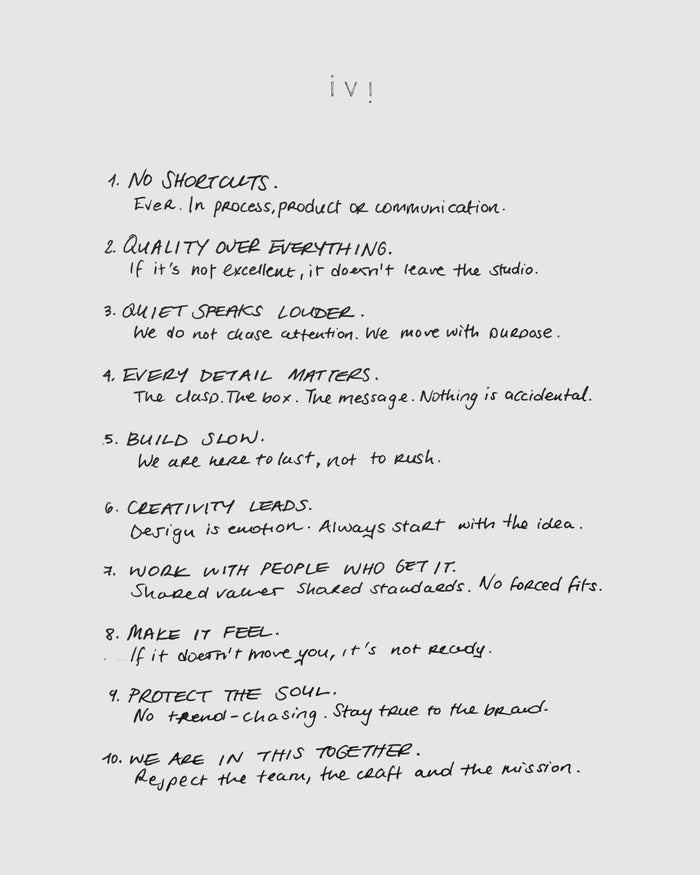 ivi
1. NO SHORTCUTS.
Ever. In process, product or communication.
2. QUALITY OVER EVERYTHING.
If it's not excellent, it doesn't leave the studio.
3. QUIET SPEAKS LOUDER.
We do not chase attention. We move with purpose.
4. EVERY DETAIL MATTERS.
The clasp. The box. The message. Nothing is accidental.
5. BUILD SLOW.
We are here to last, not to rush.
6. CREATIVITY LEADS.
Design is emotion. Always start with the idea.
7. WORK WITH PEOPLE WHO GET IT.
Shared values shared standards. No forced fits.
8. MAKE IT FEEL.
If it doesn't move you, it's not ready.
9. PROTECT THE SOUL.
No trend-chasing. Stay true to the brand.
10. WE ARE IN THIS TOGETHER.
Respect the team, the craft and the mission.